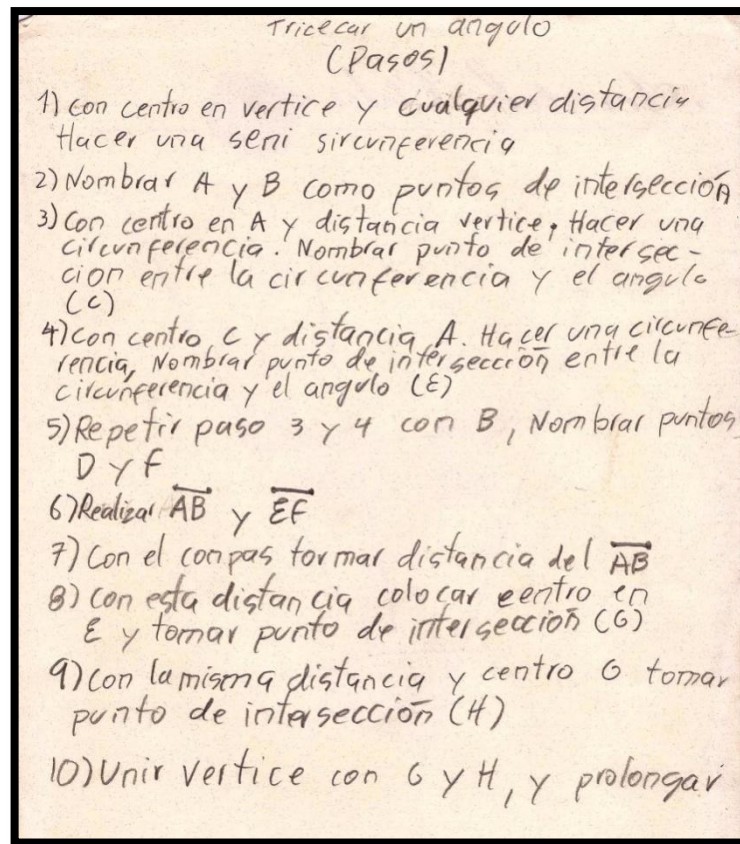 Tricecar un angulo
(Pasos)
1) con centro en vertice y cualquier distancia
Hacer una semi sircunferencia
2) Nombrar A y B como puntos de intersección
3) Con centro en A y distancia vertice, Hacer una
circunferencia. Nombrar punto de intersec-
cion entre la circunferencia y el angulo
(C)
4) con centro C y distancia A. Hacer una circunfe
rencia, Nombrar punto de intersección entre la
circunferencia y el angulo (E)
5) Repetir paso 3 y 4 con B, Nombrar puntos
D y F
6) Realizar AB y EF
7) Con el conpas tormar distancia del AB
8) con esta distancia colocar centro en
E y tomar punto de intersección (G)
9) con la misma distancia y centro G tomar
punto de intersección (H)
10) Unir vertice con G y H, y prolongar